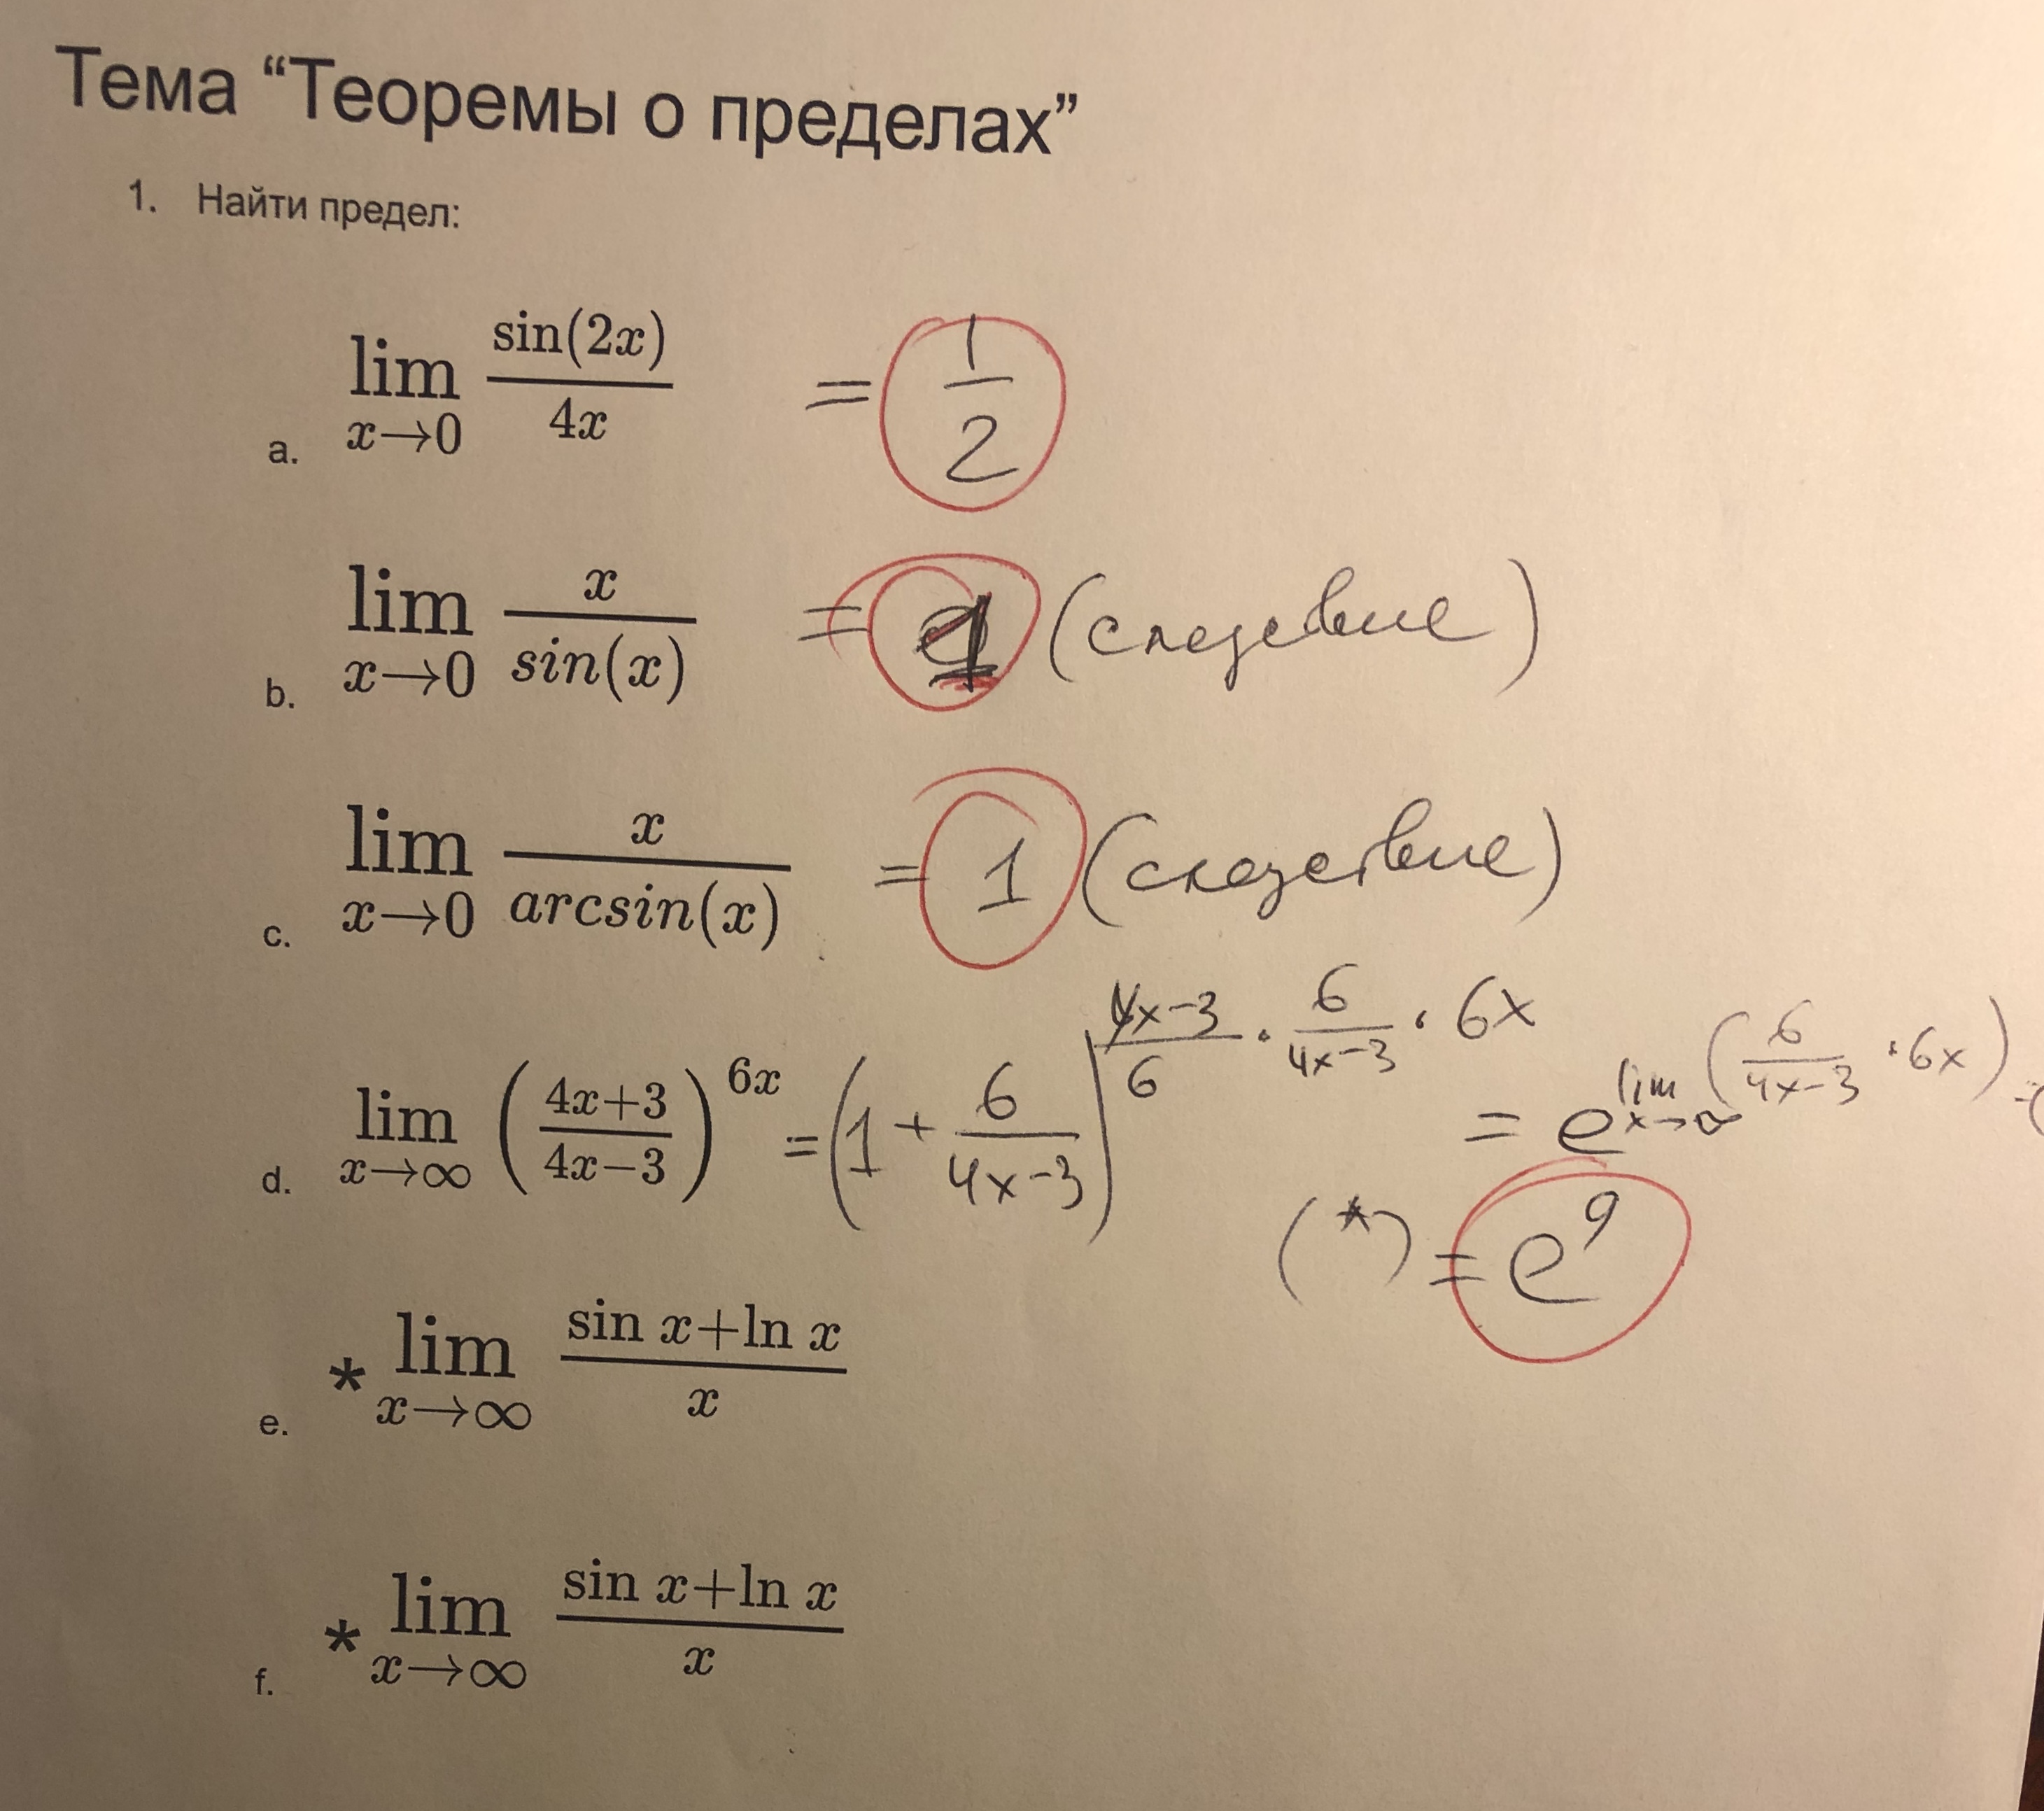 Тема “Теоремы о пределах”
1. Найти предел:
a. lim x→0 sin(2x)/4x = 1/2
b. lim x→0 x/sin(x) = 1 (следствие)
c. lim x→0 x/arcsin(x) = 1 (следствие)
d. lim x→∞ ((4x+3)/(4x−3))^6x = (1 + 6/(4x−3))^((4x−3)/6 · 6/(4x−3) · 6x) = e^(lim x→∞ (6/(4x−3) · 6x)) =
(*) = e^9
e. * lim x→∞ (sin x+ln x)/x
f. * lim x→∞ (sin x+ln x)/x